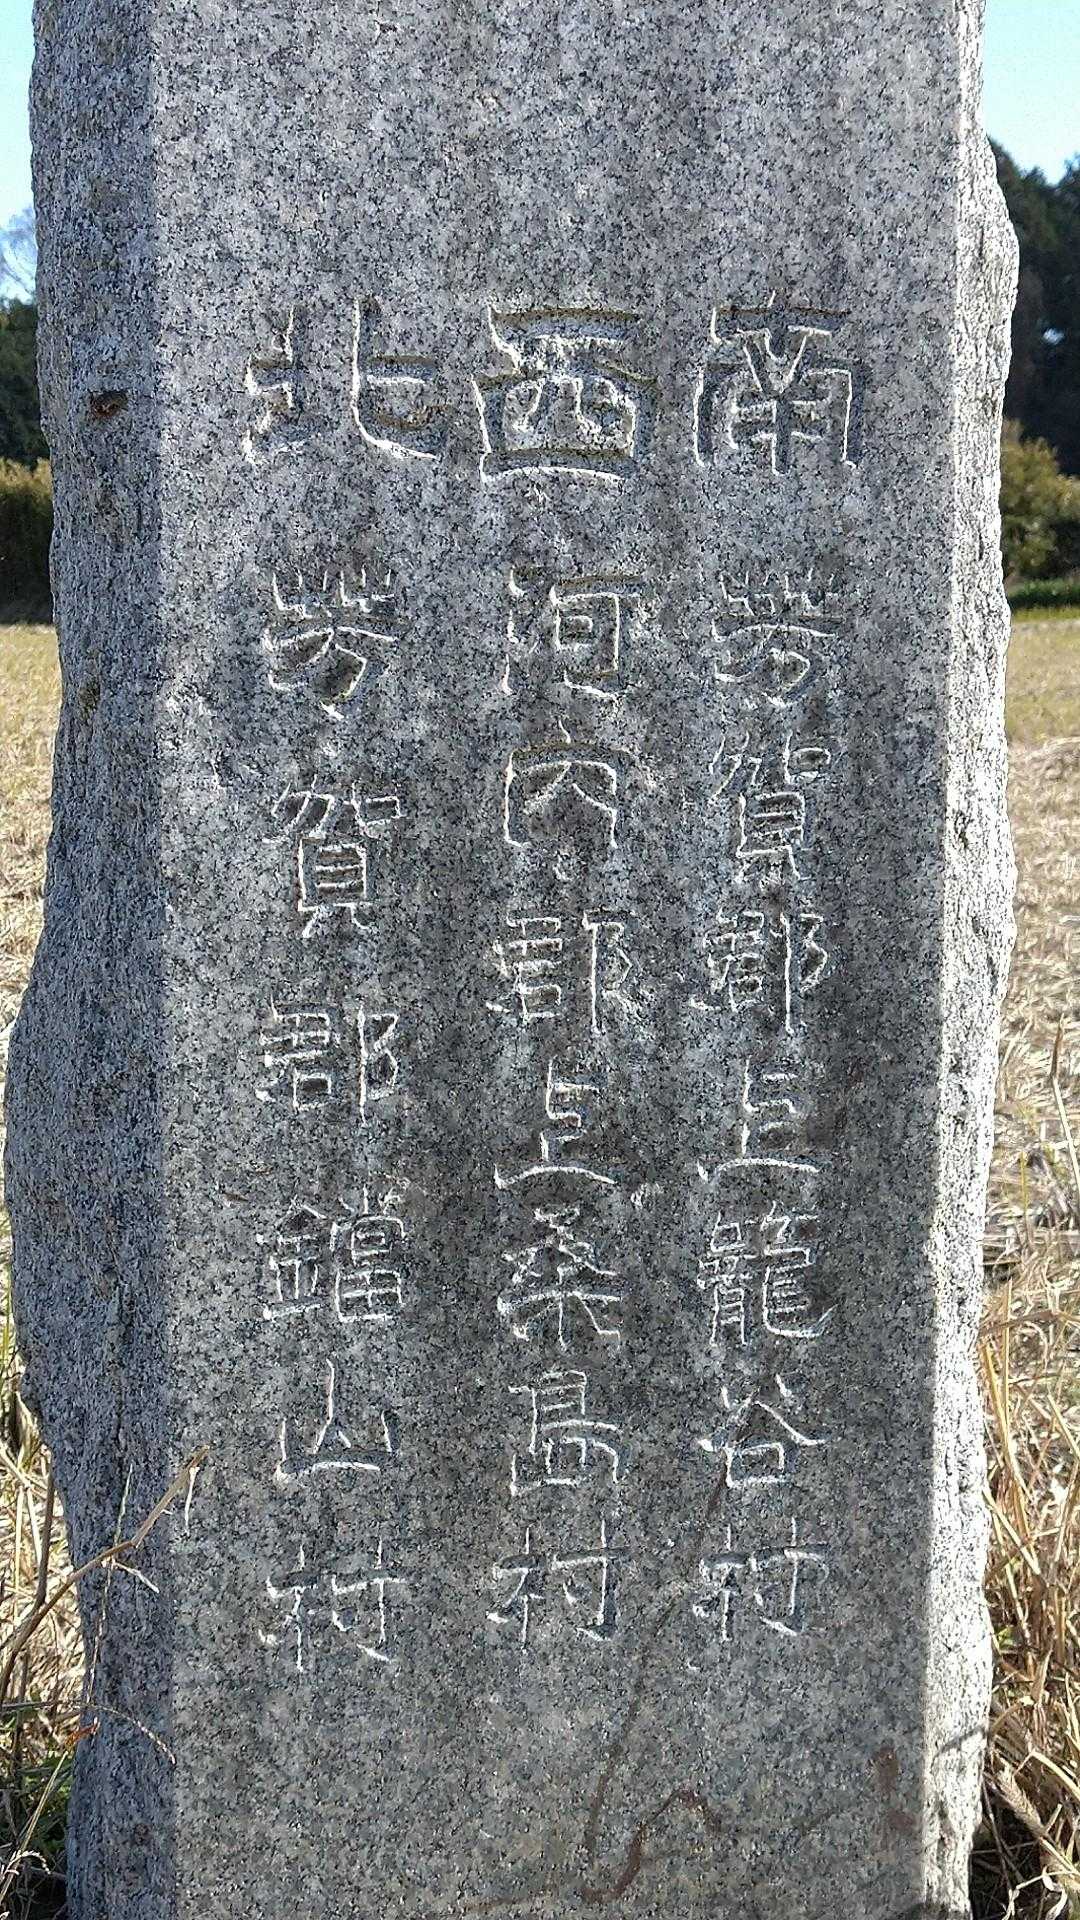 南 芳賀郡上籠谷村
西 河内郡上桑島村
北 芳賀郡鐺山村